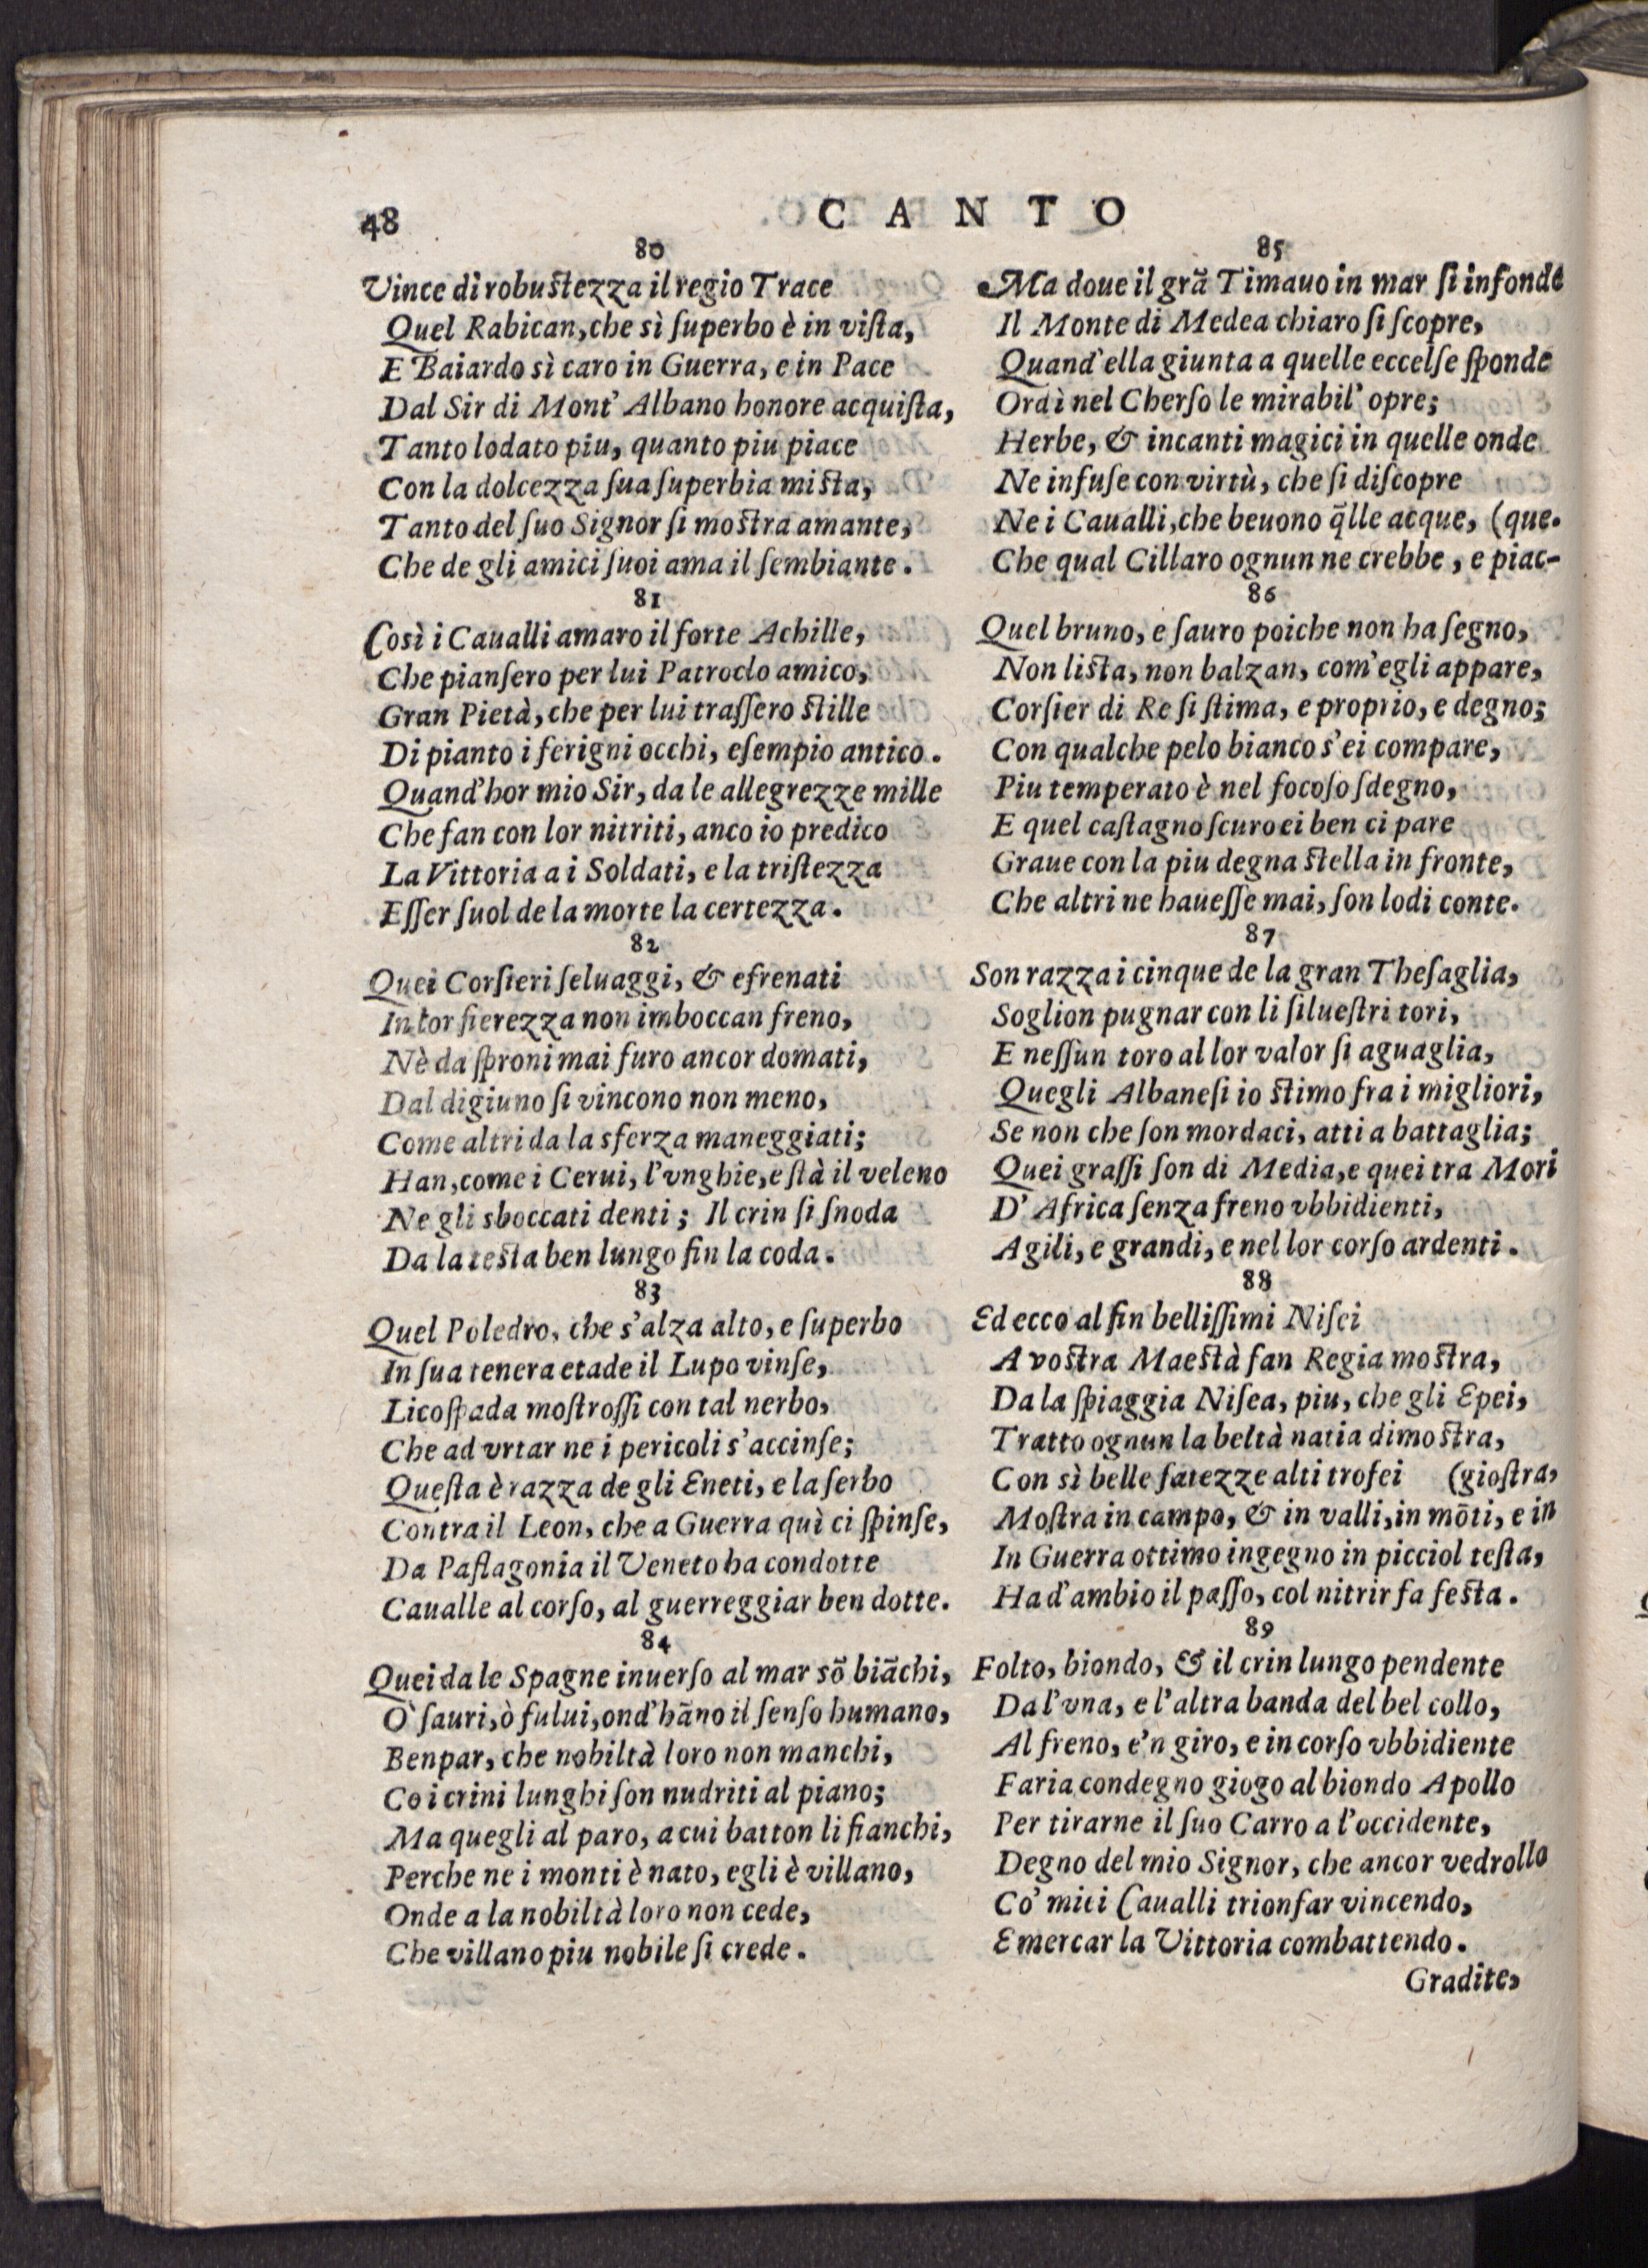 48
CANTO
80
Vince di robuſtezza il regio Trace
Quel Rabican, che sì ſuperbo è in viſta,
E Baiardo sì caro in Guerra, e in Pace
Dal Sir di Mont' Albano honore acquiſta,
Tanto lodato piu, quanto piu piace
Con la dolcezza ſua ſuperbia miſta,
Tanto del ſuo Signor ſi moſtra amante,
Che de gli amici ſuoi ama il ſembiante.
81
Così i Caualli amaro il forte Achille,
Che pianſero per lui Patroclo amico,
Gran Pietà, che per lui traſſero ſtille
Di pianto i ferigni occhi, eſempio antico.
Quand'hor mio Sir, da le allegrezze mille
Che fan con lor nitriti, anco io predico
La Vittoria a i Soldati, e la triſtezza
Eſſer ſuol de la morte la certezza.
82
Quei Corſieri ſeluaggi, & efrenati
In lor fierezza non imboccan freno,
Nè da ſproni mai furo ancor domati,
Dal digiuno ſi vincono non meno,
Come altri da la sferza maneggiati;
Han, come i Cerui, l'vnghie, e ſtà il veleno
Ne gli sboccati denti; Il crin ſi ſnoda
Da la teſta ben lungo fin la coda.
83
Quel Poledro, che s'alza alto, e ſuperbo
In ſua tenera etade il Lupo vinſe,
Licoſpada moſtroſſi con tal nerbo,
Che ad vrtar ne i pericoli s'accinſe;
Queſta è razza de gli Eneti, e la ſerbo
Contra il Leon, che a Guerra quì ci ſpinſe,
Da Paflagonia il Veneto ha condotte
Caualle al corſo, al guerreggiar ben dotte.
84
Quei da le Spagne inuerſo al mar sõ biãchi,
Ò ſauri, ò fului, ond'hãno il ſenſo humano,
Benpar, che nobiltà loro non manchi,
Co i crini lunghi ſon nudriti al piano;
Ma quegli al paro, a cui batton li fianchi,
Perche ne i monti è nato, egli è villano,
Onde a la nobiltà loro non cede,
Che villano piu nobile ſi crede.
85
Ma doue il grã Timauo in mar ſi infonde
Il Monte di Medea chiaro ſi ſcopre,
Quand'ella giunta a quelle eccelſe ſponde
Ordì nel Cherſo le mirabil' opre;
Herbe, & incanti magici in quelle onde
Ne infuſe con virtù, che ſi diſcopre
Ne i Caualli, che beuono q̃lle acque, (que.
Che qual Cillaro ognun ne crebbe, e piac-
86
Quel bruno, e ſauro poiche non ha ſegno,
Non liſta, non balzan, com'egli appare,
Corſier di Re ſi ſtima, e proprio, e degno;
Con qualche pelo bianco s'ei compare,
Piu temperato è nel focoſo ſdegno,
E quel caſtagno ſcuro ei ben ci pare
Graue con la piu degna ſtella in fronte,
Che altri ne haueſſe mai, ſon lodi conte.
87
Son razza i cinque de la gran Theſaglia,
Soglion pugnar con li ſilueſtri tori,
E neſſun toro al lor valor ſi aguaglia,
Quegli Albaneſi io ſtimo fra i migliori,
Se non che ſon mordaci, atti a battaglia;
Quei graſſi ſon di Media, e quei tra Mori
D'Africa ſenza freno vbbidienti,
Agili, e grandi, e nel lor corſo ardenti.
88
Ed ecco al fin belliſſimi Niſei
A voſtra Maeſtà fan Regia moſtra,
Da la ſpiaggia Niſea, piu, che gli Epei,
Tratto ognun la beltà natia dimoſtra,
Con sì belle fatezze alti trofei (gioſtra,
Moſtra in campo, & in valli, in mõti, e in
In Guerra ottimo ingegno in picciol teſta,
Ha d'ambio il paſſo, col nitrir fa feſta.
89
Folto, biondo, & il crin lungo pendente
Da l'vna, e l'altra banda del bel collo,
Al freno, e'n giro, e in corſo vbbidiente
Faria condegno giogo al biondo Apollo
Per tirarne il ſuo Carro a l'occidente,
Degno del mio Signor, che ancor vedrollo
Co' miei Caualli trionfar vincendo,
E mercar la Vittoria combattendo.
Gradite,